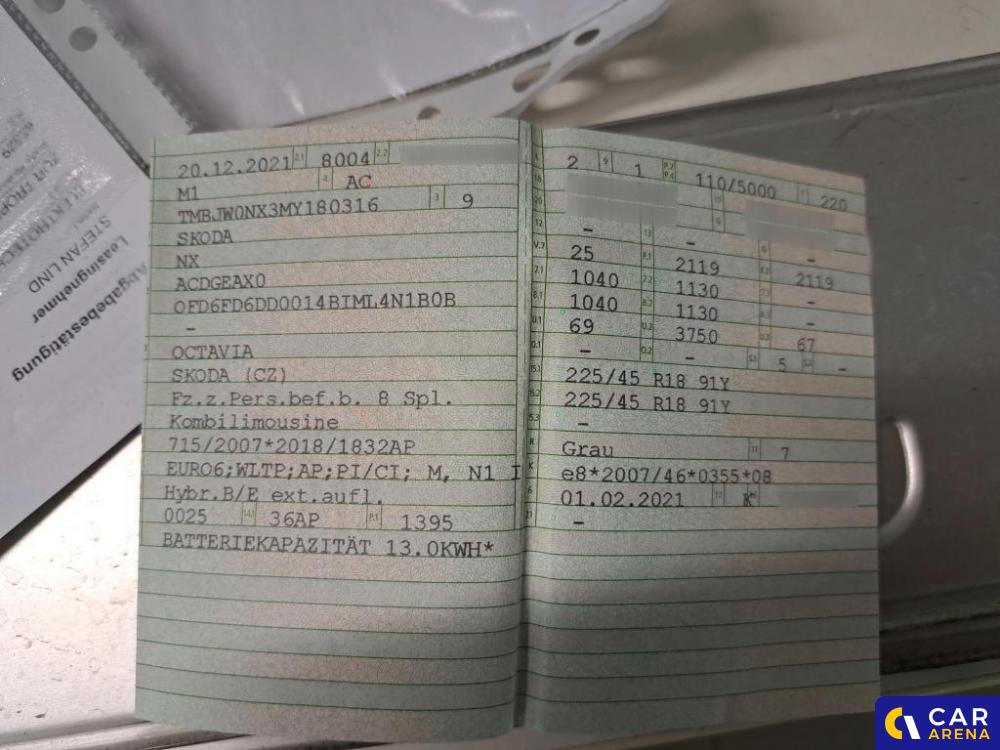 20.12.2021 2.1 8004 2.2
M1 4 AC
TMBJW0NX3MY180316 3 9
SKODA
NX
ACDGEAX0
OFD6FD6DD0014BIML4N1B0B
–
OCTAVIA
SKODA (CZ)
Fz.z.Pers.bef.b. 8 Spl.
Kombilimousine
715/2007*2018/1832AP
EURO6;WLTP;AP;PI/CI; M, N1 I
Hybr.B/E ext.aufl.
0025 14.1 36AP P.1 1395
BATTERIEKAPAZITÄT 13.0KWH*
L 2 9 1 P.2 P.4 110/5000 T 220
18 19 G
12 – 13 – Q –
V.7 25 F.1 2119 F.2 2119
7.1 1040 7.2 1130 7.3 –
8.1 1040 8.2 1130 8.3 –
U.1 69 U.2 3750 U.3 67
O.1 – O.2 – S.1 5 S.2 –
15.1 225/45 R18 91Y
15.2 225/45 R18 91Y
15.3 –
R Grau 11 7
K e8*2007/46*0355*08
6 01.02.2021 17 K
21 –
Abgabebestätigung
Leasingnehmer
STEFAN LIND
CAR
ARENA